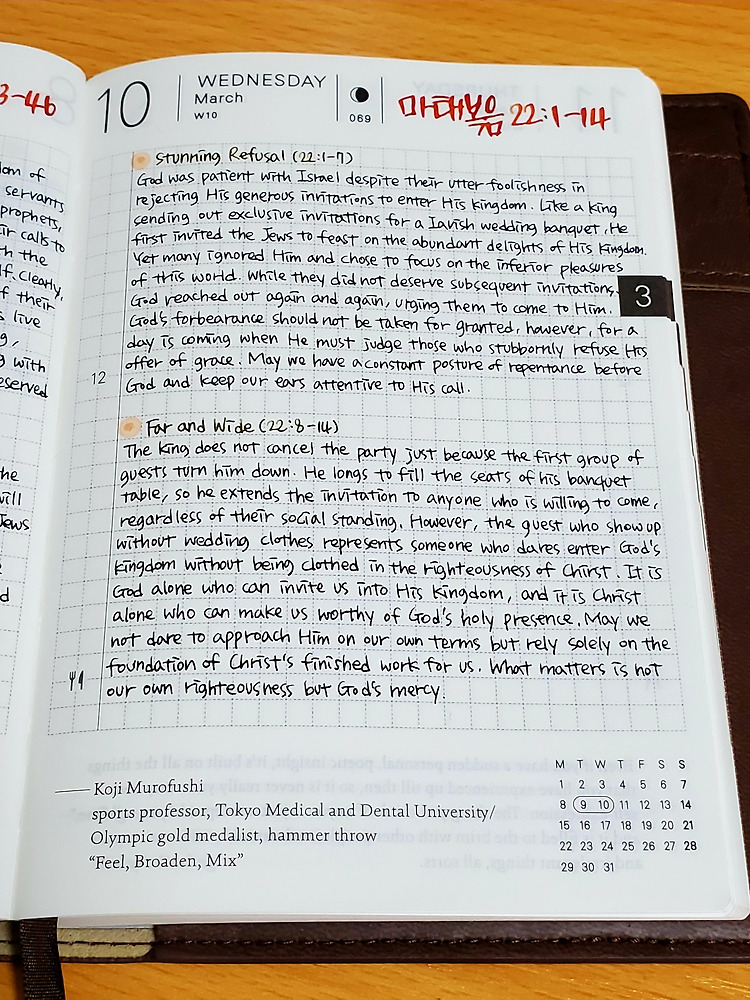 3-46
10
WEDNESDAY
March
W10
069
마태복음 22:1-14
Stunning Refusal (22:1-7)
God was patient with Israel despite their utter foolishness in
rejecting His generous invitations to enter His kingdom. Like a king
sending out exclusive invitations for a lavish wedding banquet, He
first invited the Jews to feast on the abundant delights of His Kingdom.
Yet many ignored Him and chose to focus on the inferior pleasures
of this world. While they did not deserve subsequent invitations,
God reached out again and again, urging them to come to Him.
God's forbearance should not be taken for granted, however, for a
day is coming when He must judge those who stubbornly refuse His
offer of grace. May we have a constant posture of repentance before
God and keep our ears attentive to His call.
3
12
Far and Wide (22:8-14)
The king does not cancel the party just because the first group of
guests turn him down. He longs to fill the seats of his banquet
table, so he extends the invitation to anyone who is willing to come,
regardless of their social standing. However, the guest who show up
without wedding clothes represents someone who dares enter God's
kingdom without being clothed in the righteousness of Chirst. It is
God alone who can invite us into His Kingdom, and it is Christ
alone who can make us worthy of God's holy presence. May we
not dare to approach Him on our own terms but rely solely on the
foundation of Christ's finished work for us. What matters is not
our own righteousness but God's mercy
Koji Murofushi
sports professor, Tokyo Medical and Dental University/
Olympic gold medalist, hammer throw
"Feel, Broaden, Mix"
M T W T F S S
1 2 3 4 5 6 7
8 9 10 11 12 13 14
15 16 17 18 19 20 21
22 23 24 25 26 27 28
29 30 31